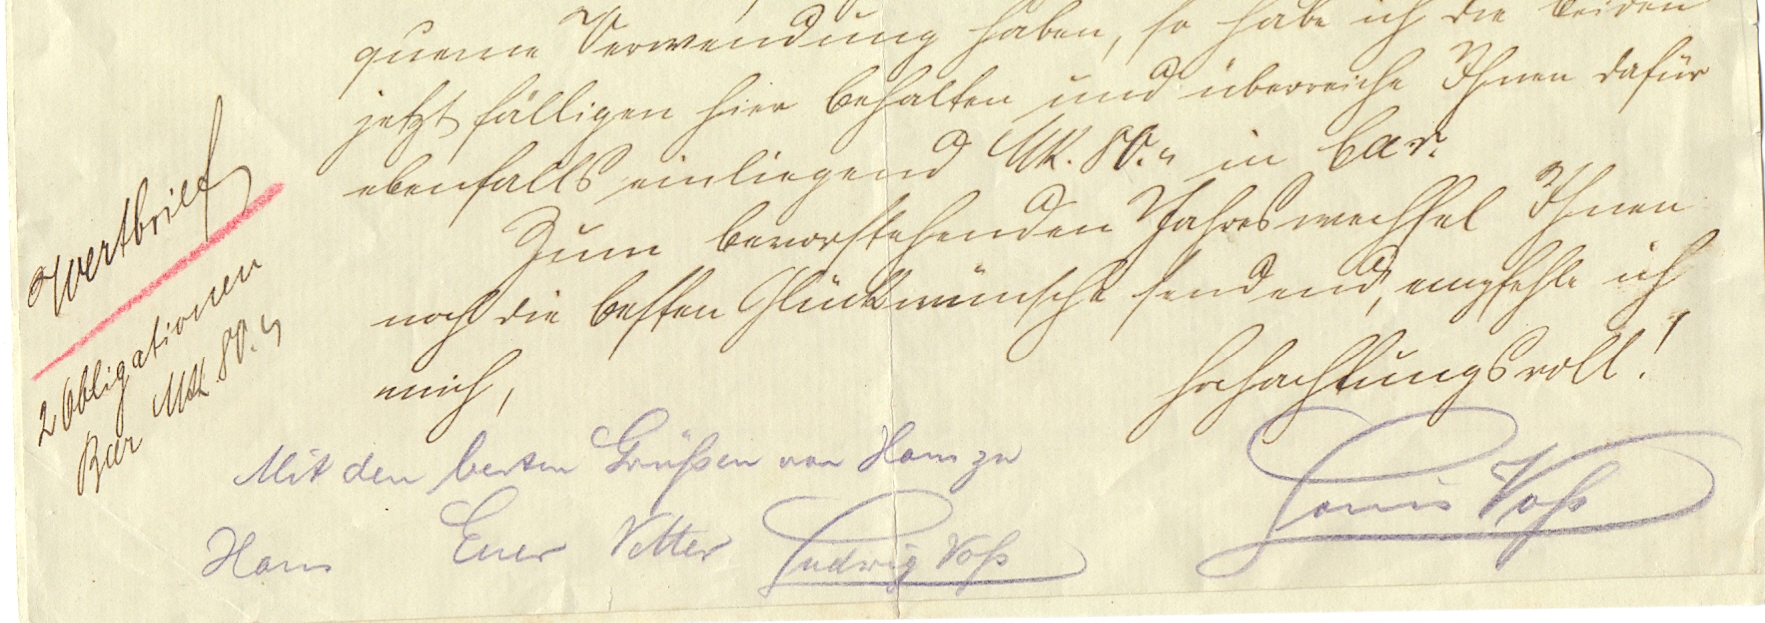 queme Verwendung haben, so habe ich die beiden
jetzt fälligen hier behalten und überreiche Ihnen dafür
ebenfalls einliegend Mk. 80.„ in bar.
Zum bevorstehenden Jahreswechsel Ihnen
noch die besten Glückwünsche sendend, empfehle ich
mich,
Hochachtungsvoll!
Louis Voß
Mit den besten Grüßen von Haus zu
Haus Euer Vetter Ludwig Voß
Wertbrief
2 Obligationen
Bar Mk. 80.„